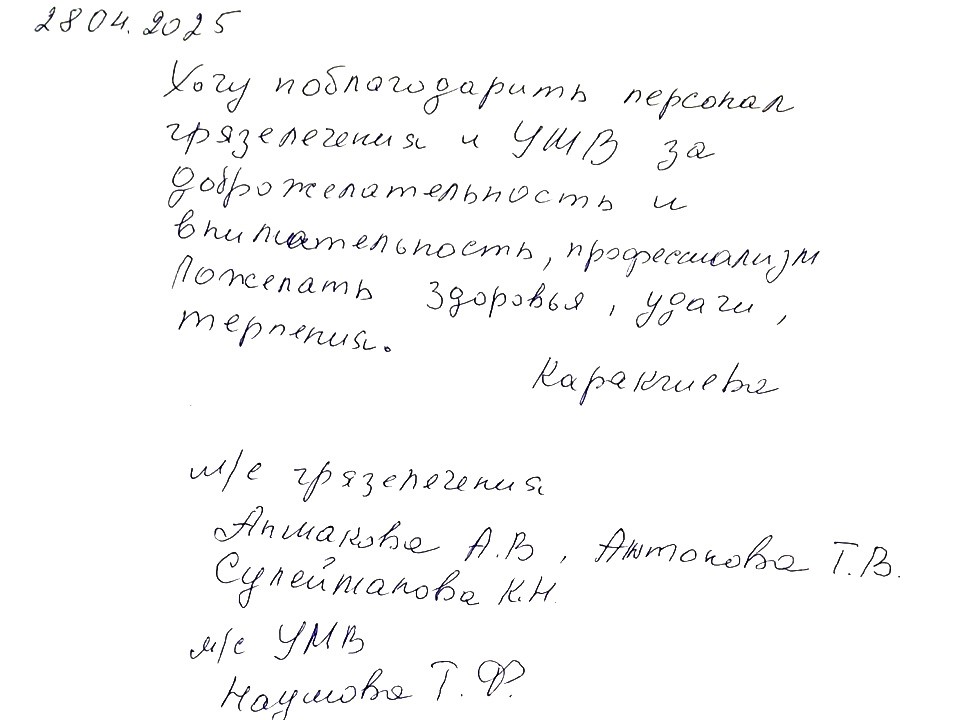 28 04. 2025
Хочу поблагодарить персонал
грязелечения и УМВ за
доброжелательность и
внимательность, профессиализм
Пожелать здоровья, удачи,
терпения.
Каракчиева
м/с грязелечения
Апмакова А.В, Антонова Т.В.
Сулейманова К.Н.
м/с УМВ
Наумова Т.Ф.